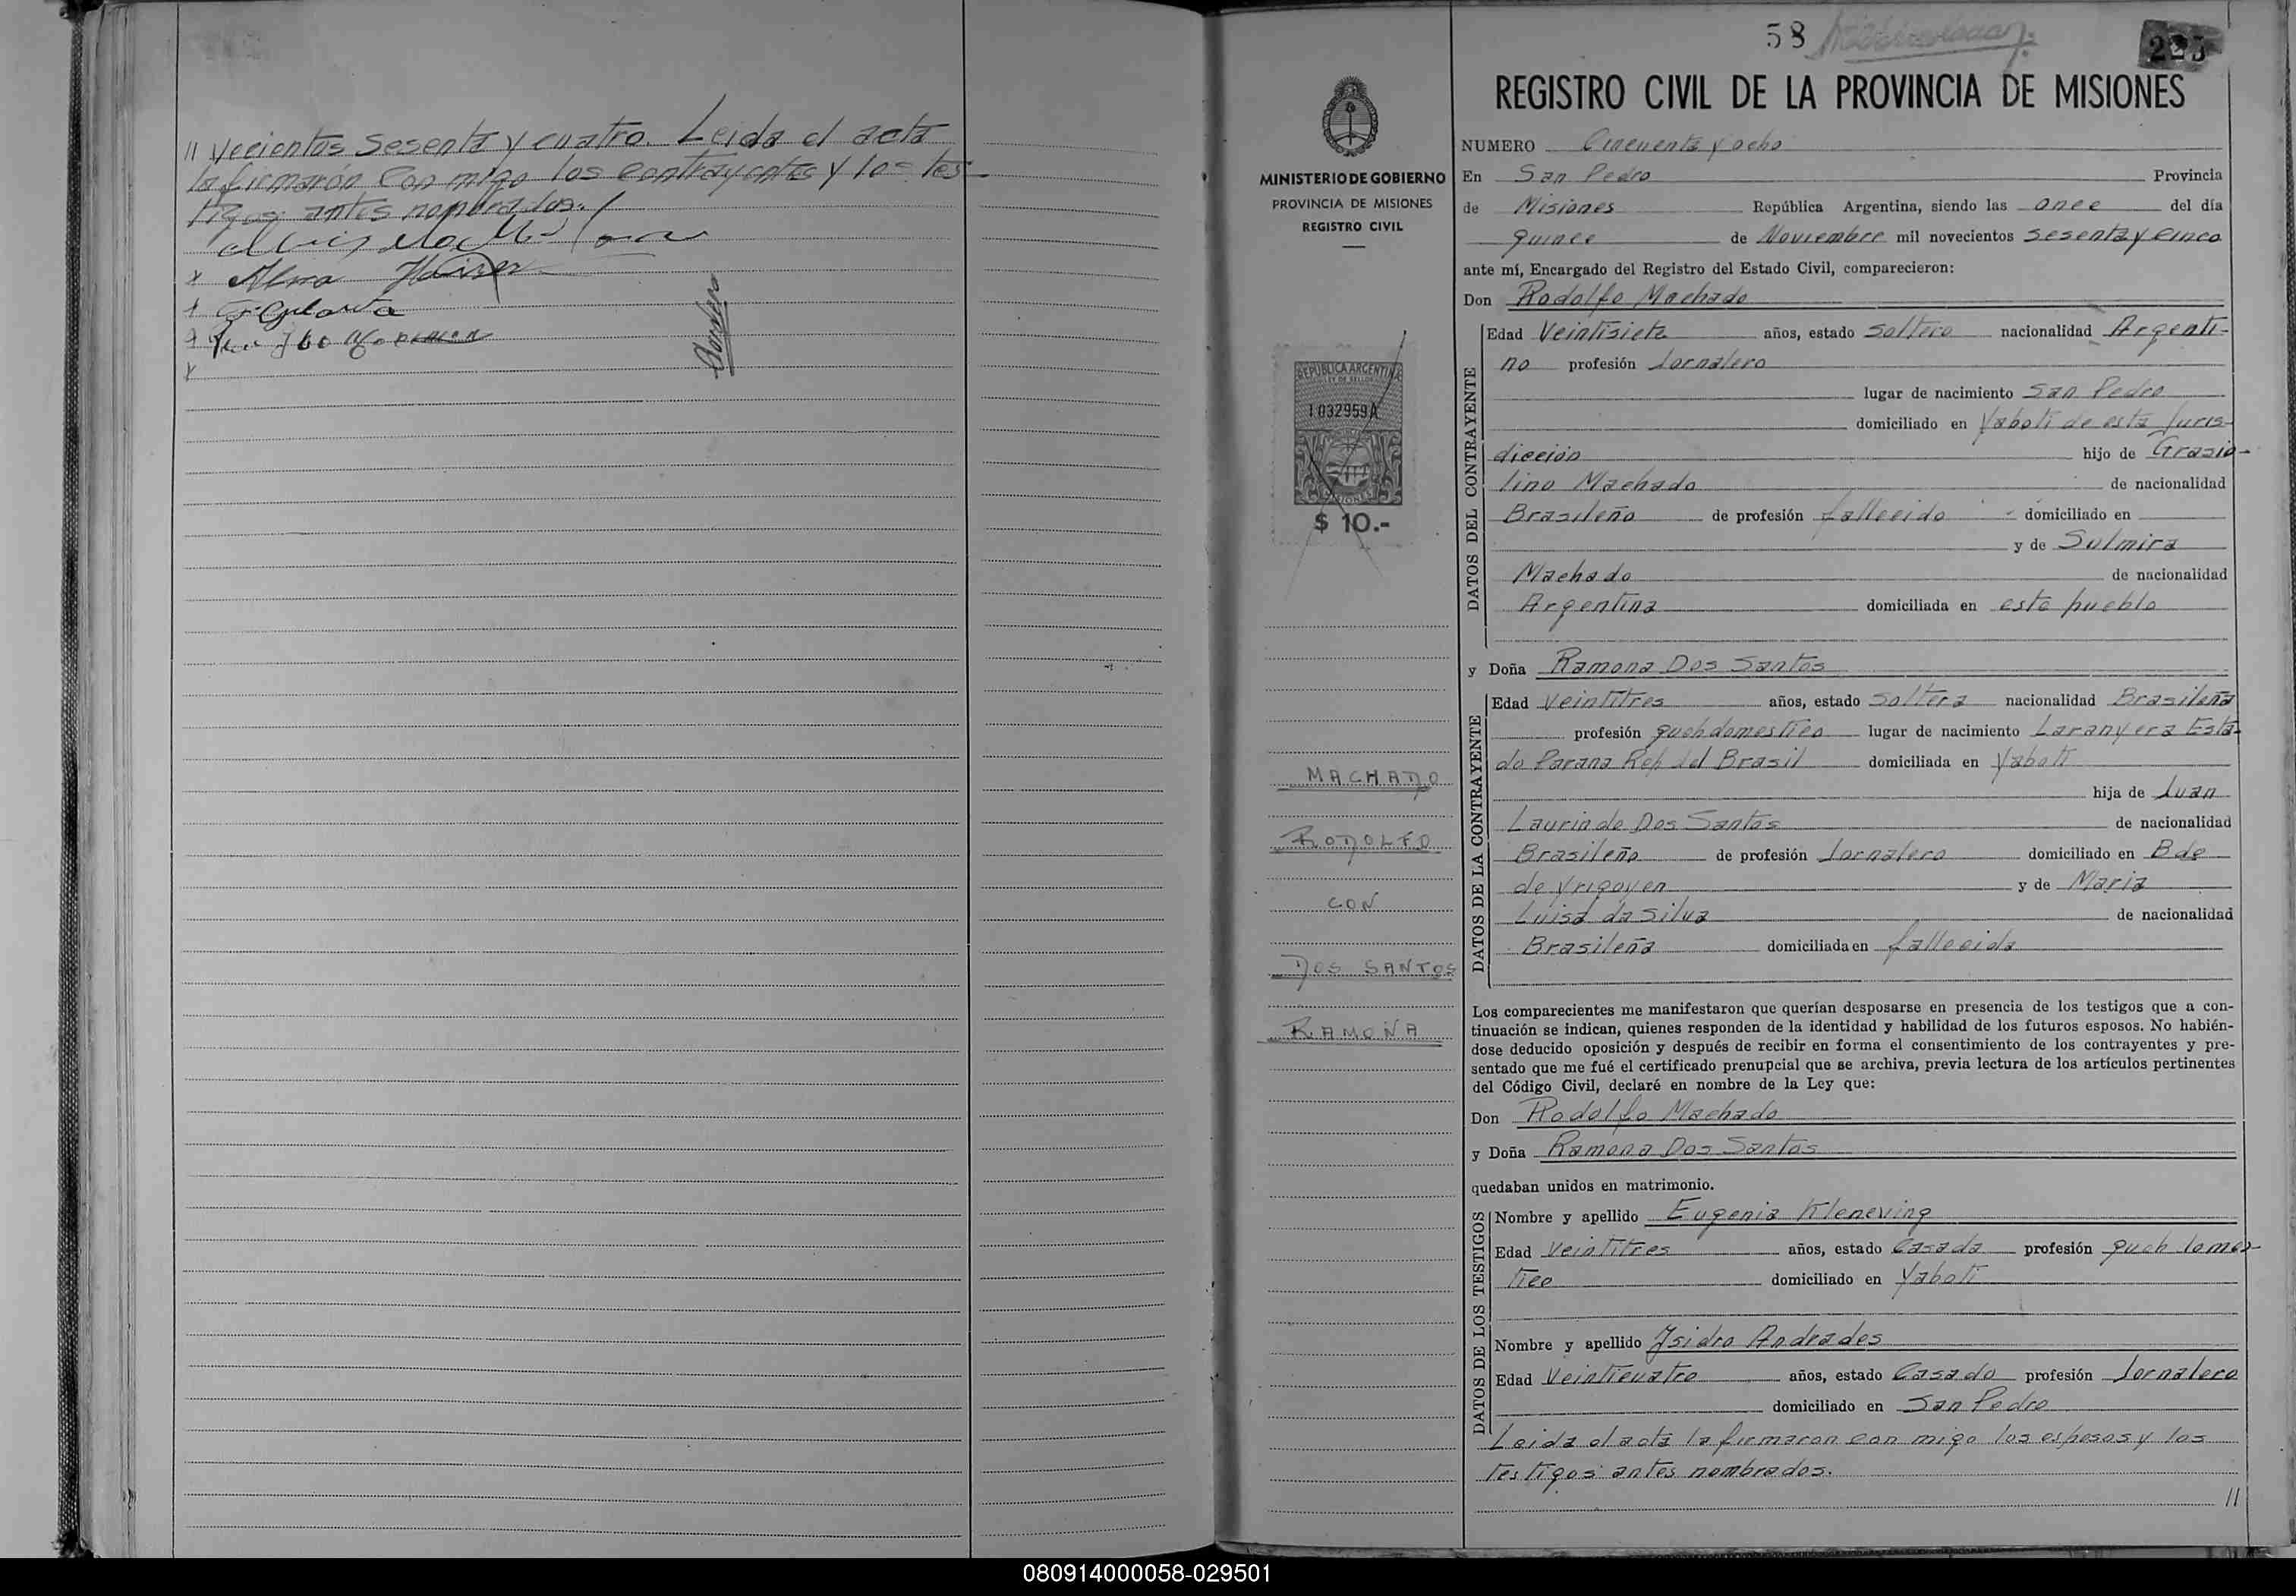 // vecientos sesenta y cuatro. Leida el acta
la firmarón con migo los contrayentes y los tes-
tigos antes nombrados.
Alma
58
REGISTRO CIVIL DE LA PROVINCIA DE MISIONES
MINISTERIO DE GOBIERNO
PROVINCIA DE MISIONES
REGISTRO CIVIL
REPUBLICA ARGENTINA
LEY DE SELLOS
1032959A
MISIONES
$ 10.-
MACHADO
RODOLFO
CON
DOS SANTOS
RAMONA
NUMERO Cincuenta y ocho
En San Pedro Provincia
de Misiones República Argentina, siendo las once del día
quince de Noviembre mil novecientos sesenta y cinco
ante mí, Encargado del Registro del Estado Civil, comparecieron:
Don Rodolfo Machado
DATOS DEL CONTRAYENTE
Edad Veintisiete años, estado soltero nacionalidad Argenti-
no profesión Jornalero
lugar de nacimiento San Pedro
domiciliado en Yaboti de esta Juris-
dicción hijo de Grasio-
lino Machado de nacionalidad
Brasileño de profesión fallecido domiciliado en
y de Sulmira
Machado de nacionalidad
Argentina domiciliada en este pueblo
y Doña Ramona Dos Santos
DATOS DE LA CONTRAYENTE
Edad Veintitres años, estado soltera nacionalidad Brasileña
profesión queh domestico lugar de nacimiento Laranyera Esta-
do Parana Rep del Brasil domiciliada en Yaboti
hija de Juan
Laurindo Dos Santos de nacionalidad
Brasileño de profesión Jornalero domiciliado en Bdo
de Yrigoyen y de Maria
Luisa da Silva de nacionalidad
Brasileña domiciliada en fallecida
Los comparecientes me manifestaron que querían desposarse en presencia de los testigos que a con-
tinuación se indican, quienes responden de la identidad y habilidad de los futuros esposos. No habién-
dose deducido oposición y después de recibir en forma el consentimiento de los contrayentes y pre-
sentado que me fué el certificado prenupcial que se archiva, previa lectura de los artículos pertinentes
del Código Civil, declaré en nombre de la Ley que:
Don Rodolfo Machado
y Doña Ramona Dos Santos
quedaban unidos en matrimonio.
DATOS DE LOS TESTIGOS
Nombre y apellido Eugenia Kleneving
Edad Veintitres años, estado Casada profesión queh domes-
tico domiciliado en Yaboti
Nombre y apellido Ysidro Andrades
Edad Veinticuatro años, estado Casado profesión Jornalero
domiciliado en San Pedro
Leida el acta la firmaron con migo los esposos y los
testigos antes nombrados.
//
080914000058-029501